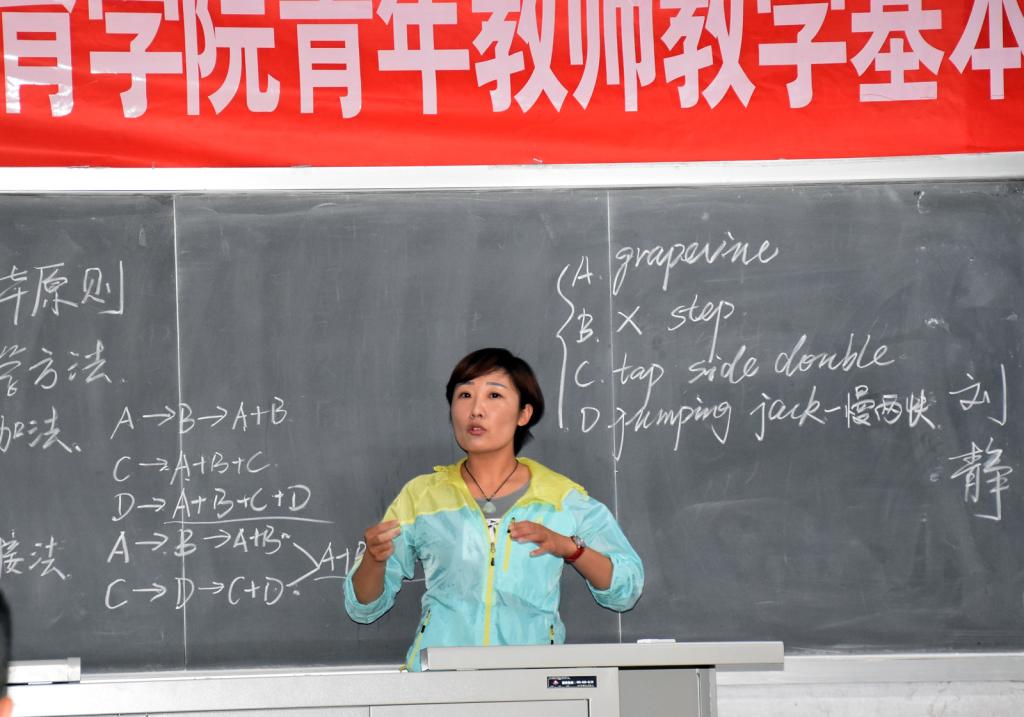 育学院青年教师教学基本
原则
学方法.
加法.
A→B→A+B
C→A+B+C
D→A+B+C+D
接法
A→B→A+B
C→D→C+D
A+B
A. grapevine
B. X step
C. tap side double
D. jumping jack-慢两快
刘
静